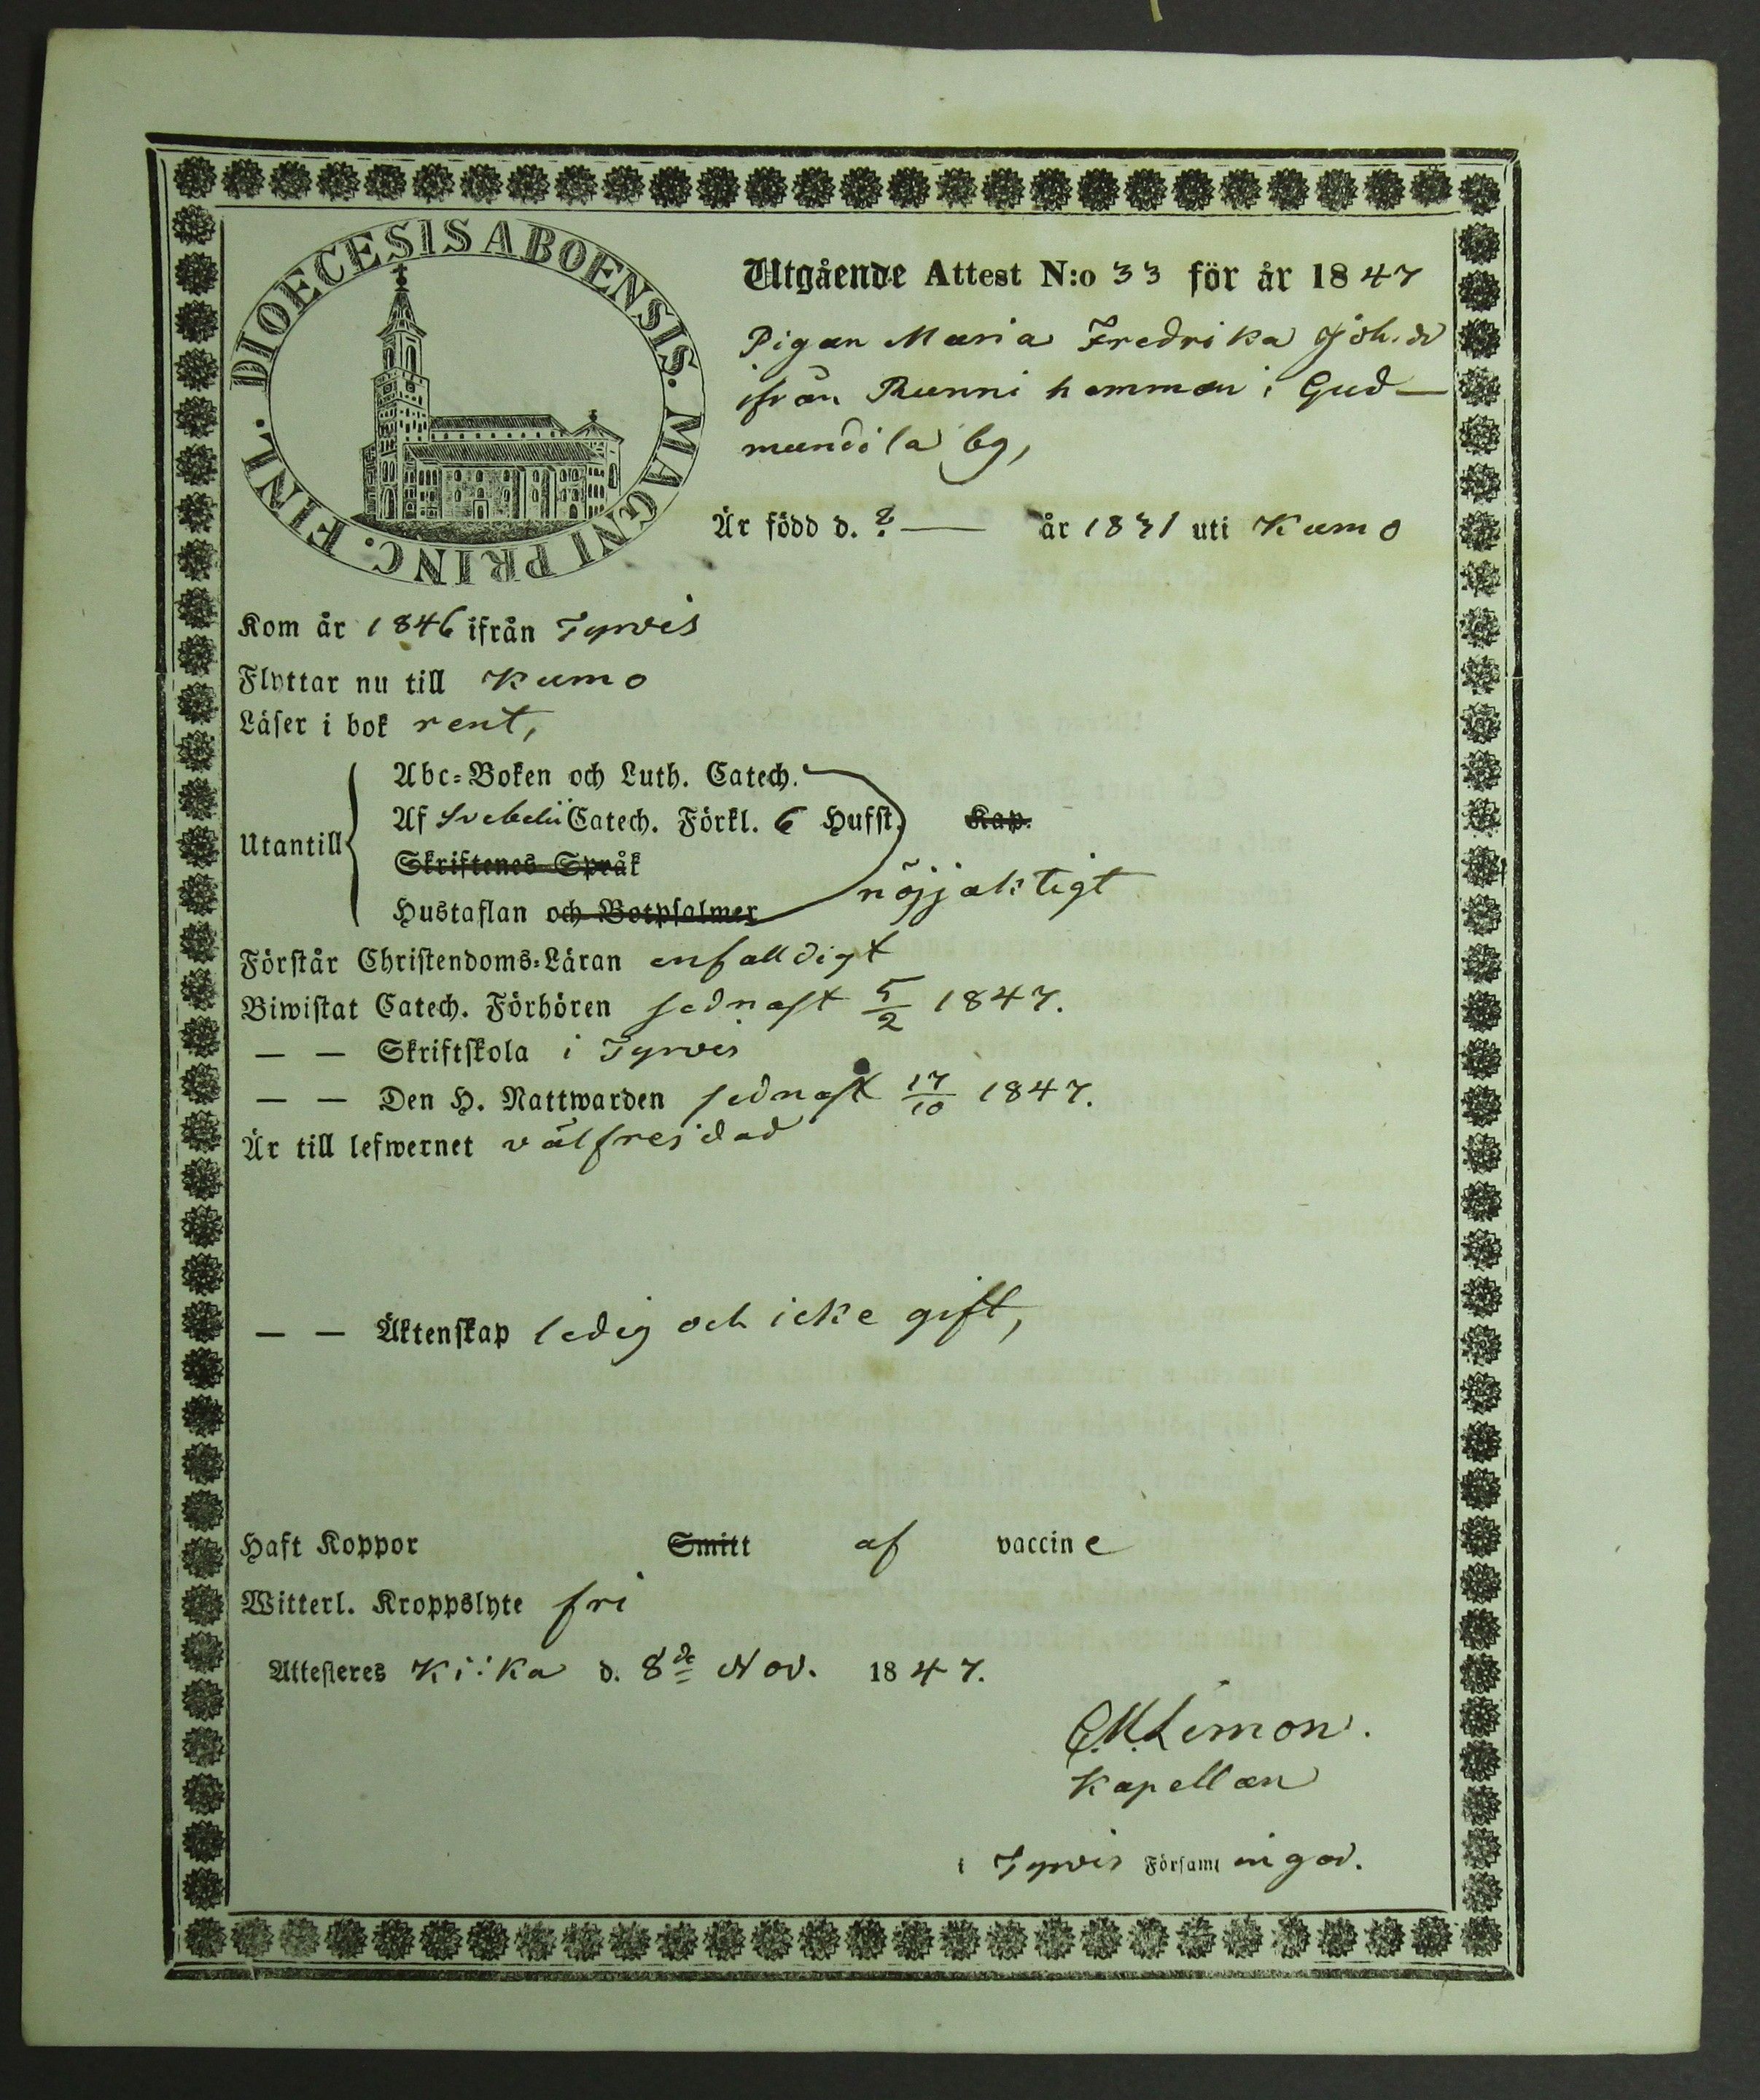 DIOECESIS ABOENSIS. MAGNI PRINC. FINL.
Utgående Attest N:o 33 för år 1847
Pigan Maria Fredrika Joh.dr
ifrån Runni hemman i Gud-
mundila by,
Är född d. ? — år 1831 uti Kumo
Kom år 1846 ifrån Tyrvis
Flyttar nu till Kumo
Läser i bok rent,
Abc-Boken och Luth. Catech.
Af Svebelii Catech. Förkl. 6 Hufst. Kap.
Utantill
Skriftenes Språk
Hustaflan och Botpsalmer nöjjaktigt
Förstår Christendoms-Läran enfalldigt
Biwistat Catech. Förhören sednast 5/2 1847.
— — Skriftskola i Tyrvis
— — Den H. Nattwarden sednast 17/10 1847.
Är till lefwernet välfrejdad
— — Äktenskap ledig och icke gift,
Haft Koppor Smitt af vaccine
Witterl. Kroppslyte fri
Attesteres Kiika d. 8de Nov. 1847.
C.M. Limon.
Kapellan
i Tyrvis Församlingar.